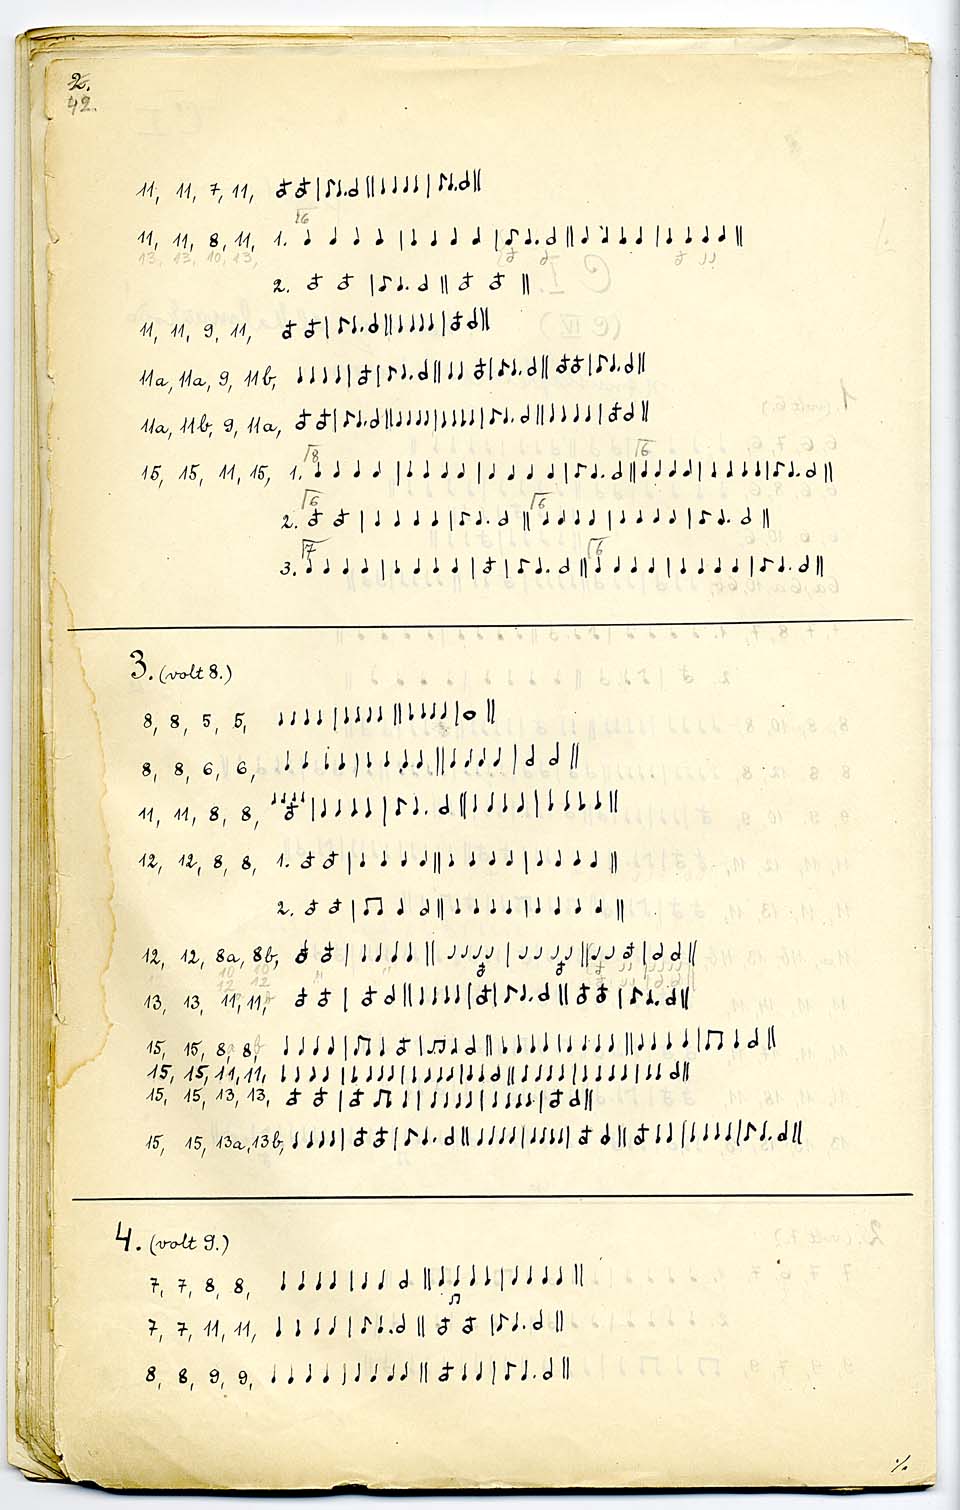 2.
42.
11, 11, 7, 11,
11, 11, 8, 11, 1.
13, 13, 10, 13,
2.
11, 11, 9, 11,
11a, 11a, 9, 11b,
11a, 11b, 9, 11a,
15, 15, 11, 15, 1.
2.
3.
3. (volt 8.)
8, 8, 5, 5,
8, 8, 6, 6,
11, 11, 8, 8,
12, 12, 8, 8, 1.
2.
12, 12, 8a, 8b,
10 10
12 12
13, 13, 11, 11,
15, 15, 8a, 8b,
15, 15, 11, 11,
15, 15, 13, 13,
15, 15, 13a, 13b,
4. (volt 9.)
7, 7, 8, 8,
7, 7, 11, 11,
8, 8, 9, 9,
./.